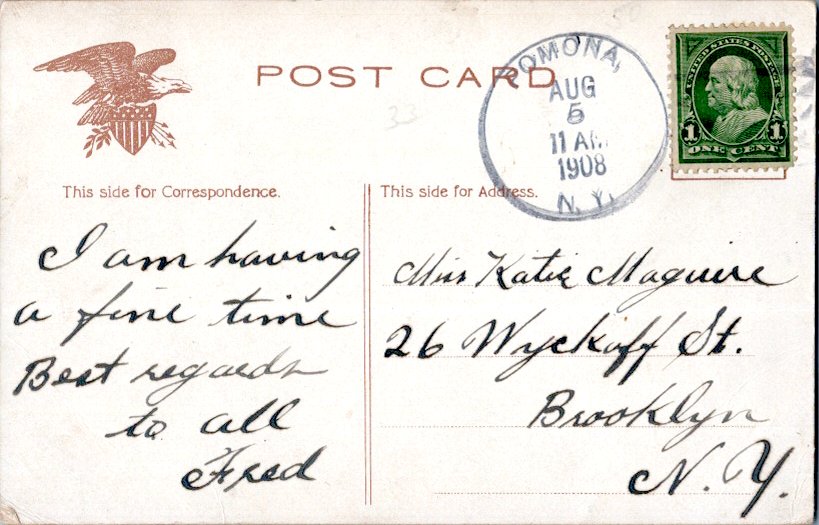 POST CARD
POMONA,
AUG
5
11 AM
1908
N. Y.
UNITED STATES POSTAGE
1 1
ONE CENT
33
This side for Correspondence.
I am having
a fine time
Best regards
to all
Fred
This side for Address.
Miss Katie Maguire
26 Wyckoff St.
Brooklyn
N. Y.